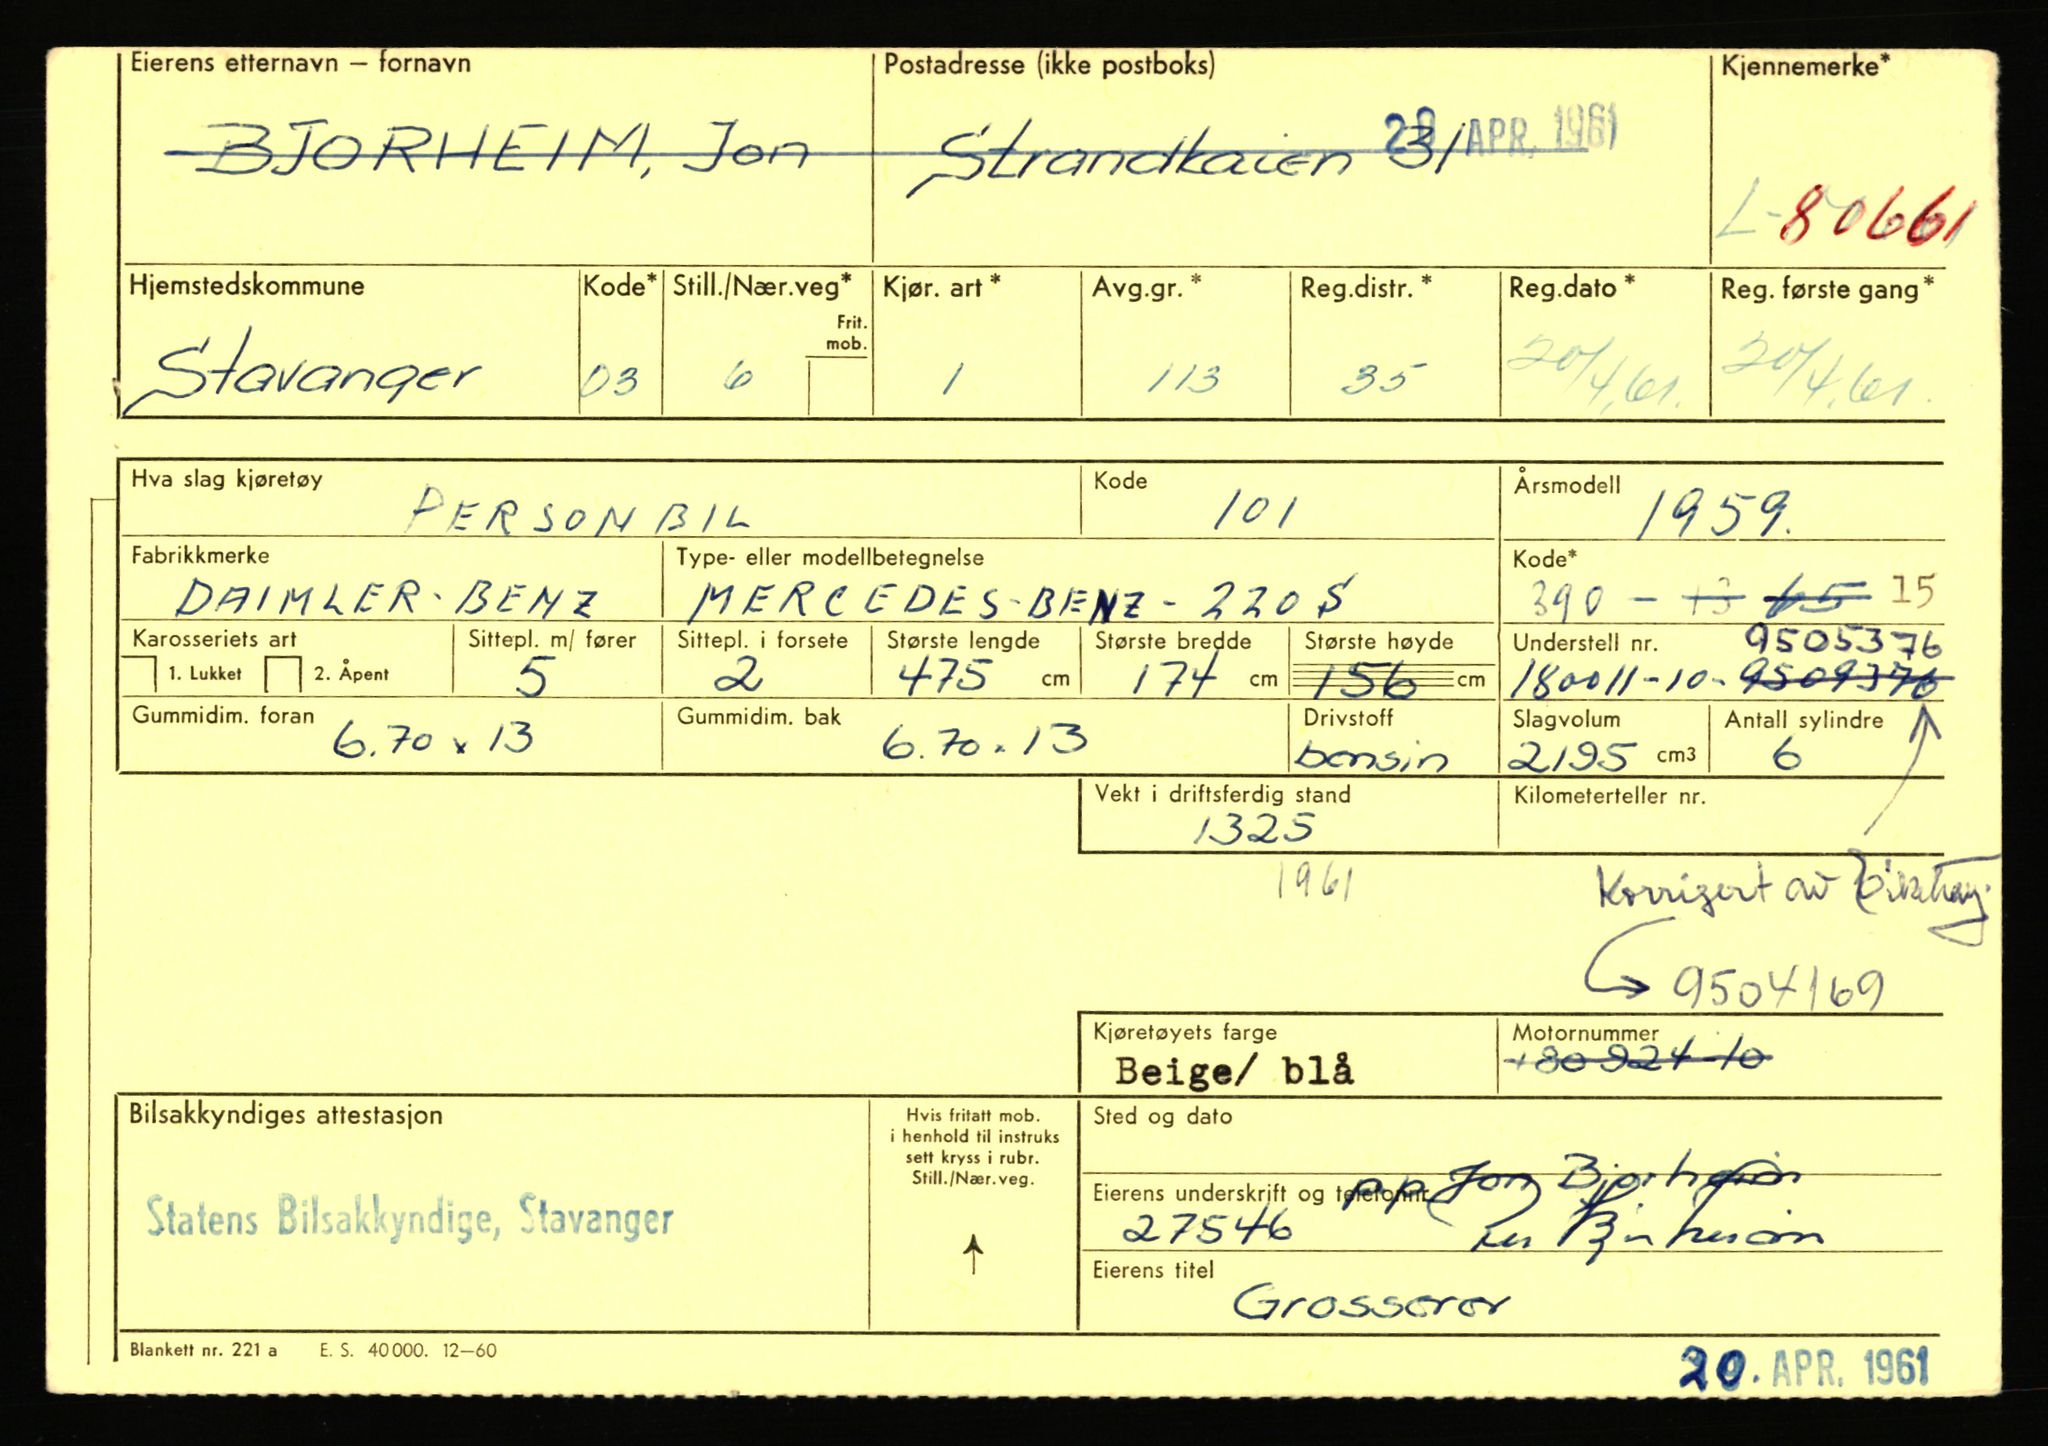 Eierens etternavn – fornavn
BJORHEIM, Jon
Postadresse (ikke postboks)
Strandkaien 31
20 APR. 1961
Kjennemerke*
L-80661
Hjemstedskommune
Stavanger
Kode*
03
Still./Nær.veg*
Frit. mob.
6
Kjør. art*
1
Avg.gr.*
113
Reg.distr.*
35
Reg.dato*
20/4.61.
Reg. første gang*
20/4.61.
Hva slag kjøretøy
PERSONBIL
Kode
101
Årsmodell
1959.
Fabrikkmerke
DAIMLER-BENZ
Type- eller modellbetegnelse
MERCEDES-BENZ - 220 S
Kode*
390 - 13 65 15
Karosseriets art
1. Lukket 2. Åpent
Sittepl. m/ fører
5
Sittepl. i forsete
2
Største lengde
475 cm
Største bredde
174 cm
Største høyde
156 cm
Understell nr. 9505376
180011-10-9509376
Gummidim. foran
6.70 x 13
Gummidim. bak
6.70 x 13
Drivstoff
bensin
Slagvolum
2195 cm3
Antall sylindre
6
Vekt i driftsferdig stand
1325
Kilometerteller nr.
1961
Korrigert av
9504169
Kjøretøyets farge
Beige/ blå
Motornummer
180924-10
Bilsakkyndiges attestasjon
Statens Bilsakkyndige, Stavanger
Hvis fritatt mob.
i henhold til instruks
sett kryss i rubr.
Still./Nær.veg.
Sted og dato
Eierens underskrift og telefonnr.
pp Jon Bjorheim
27546
Eierens titel
Grosserer
Blankett nr. 221 a E. S. 40 000. 12–60
20. APR. 1961